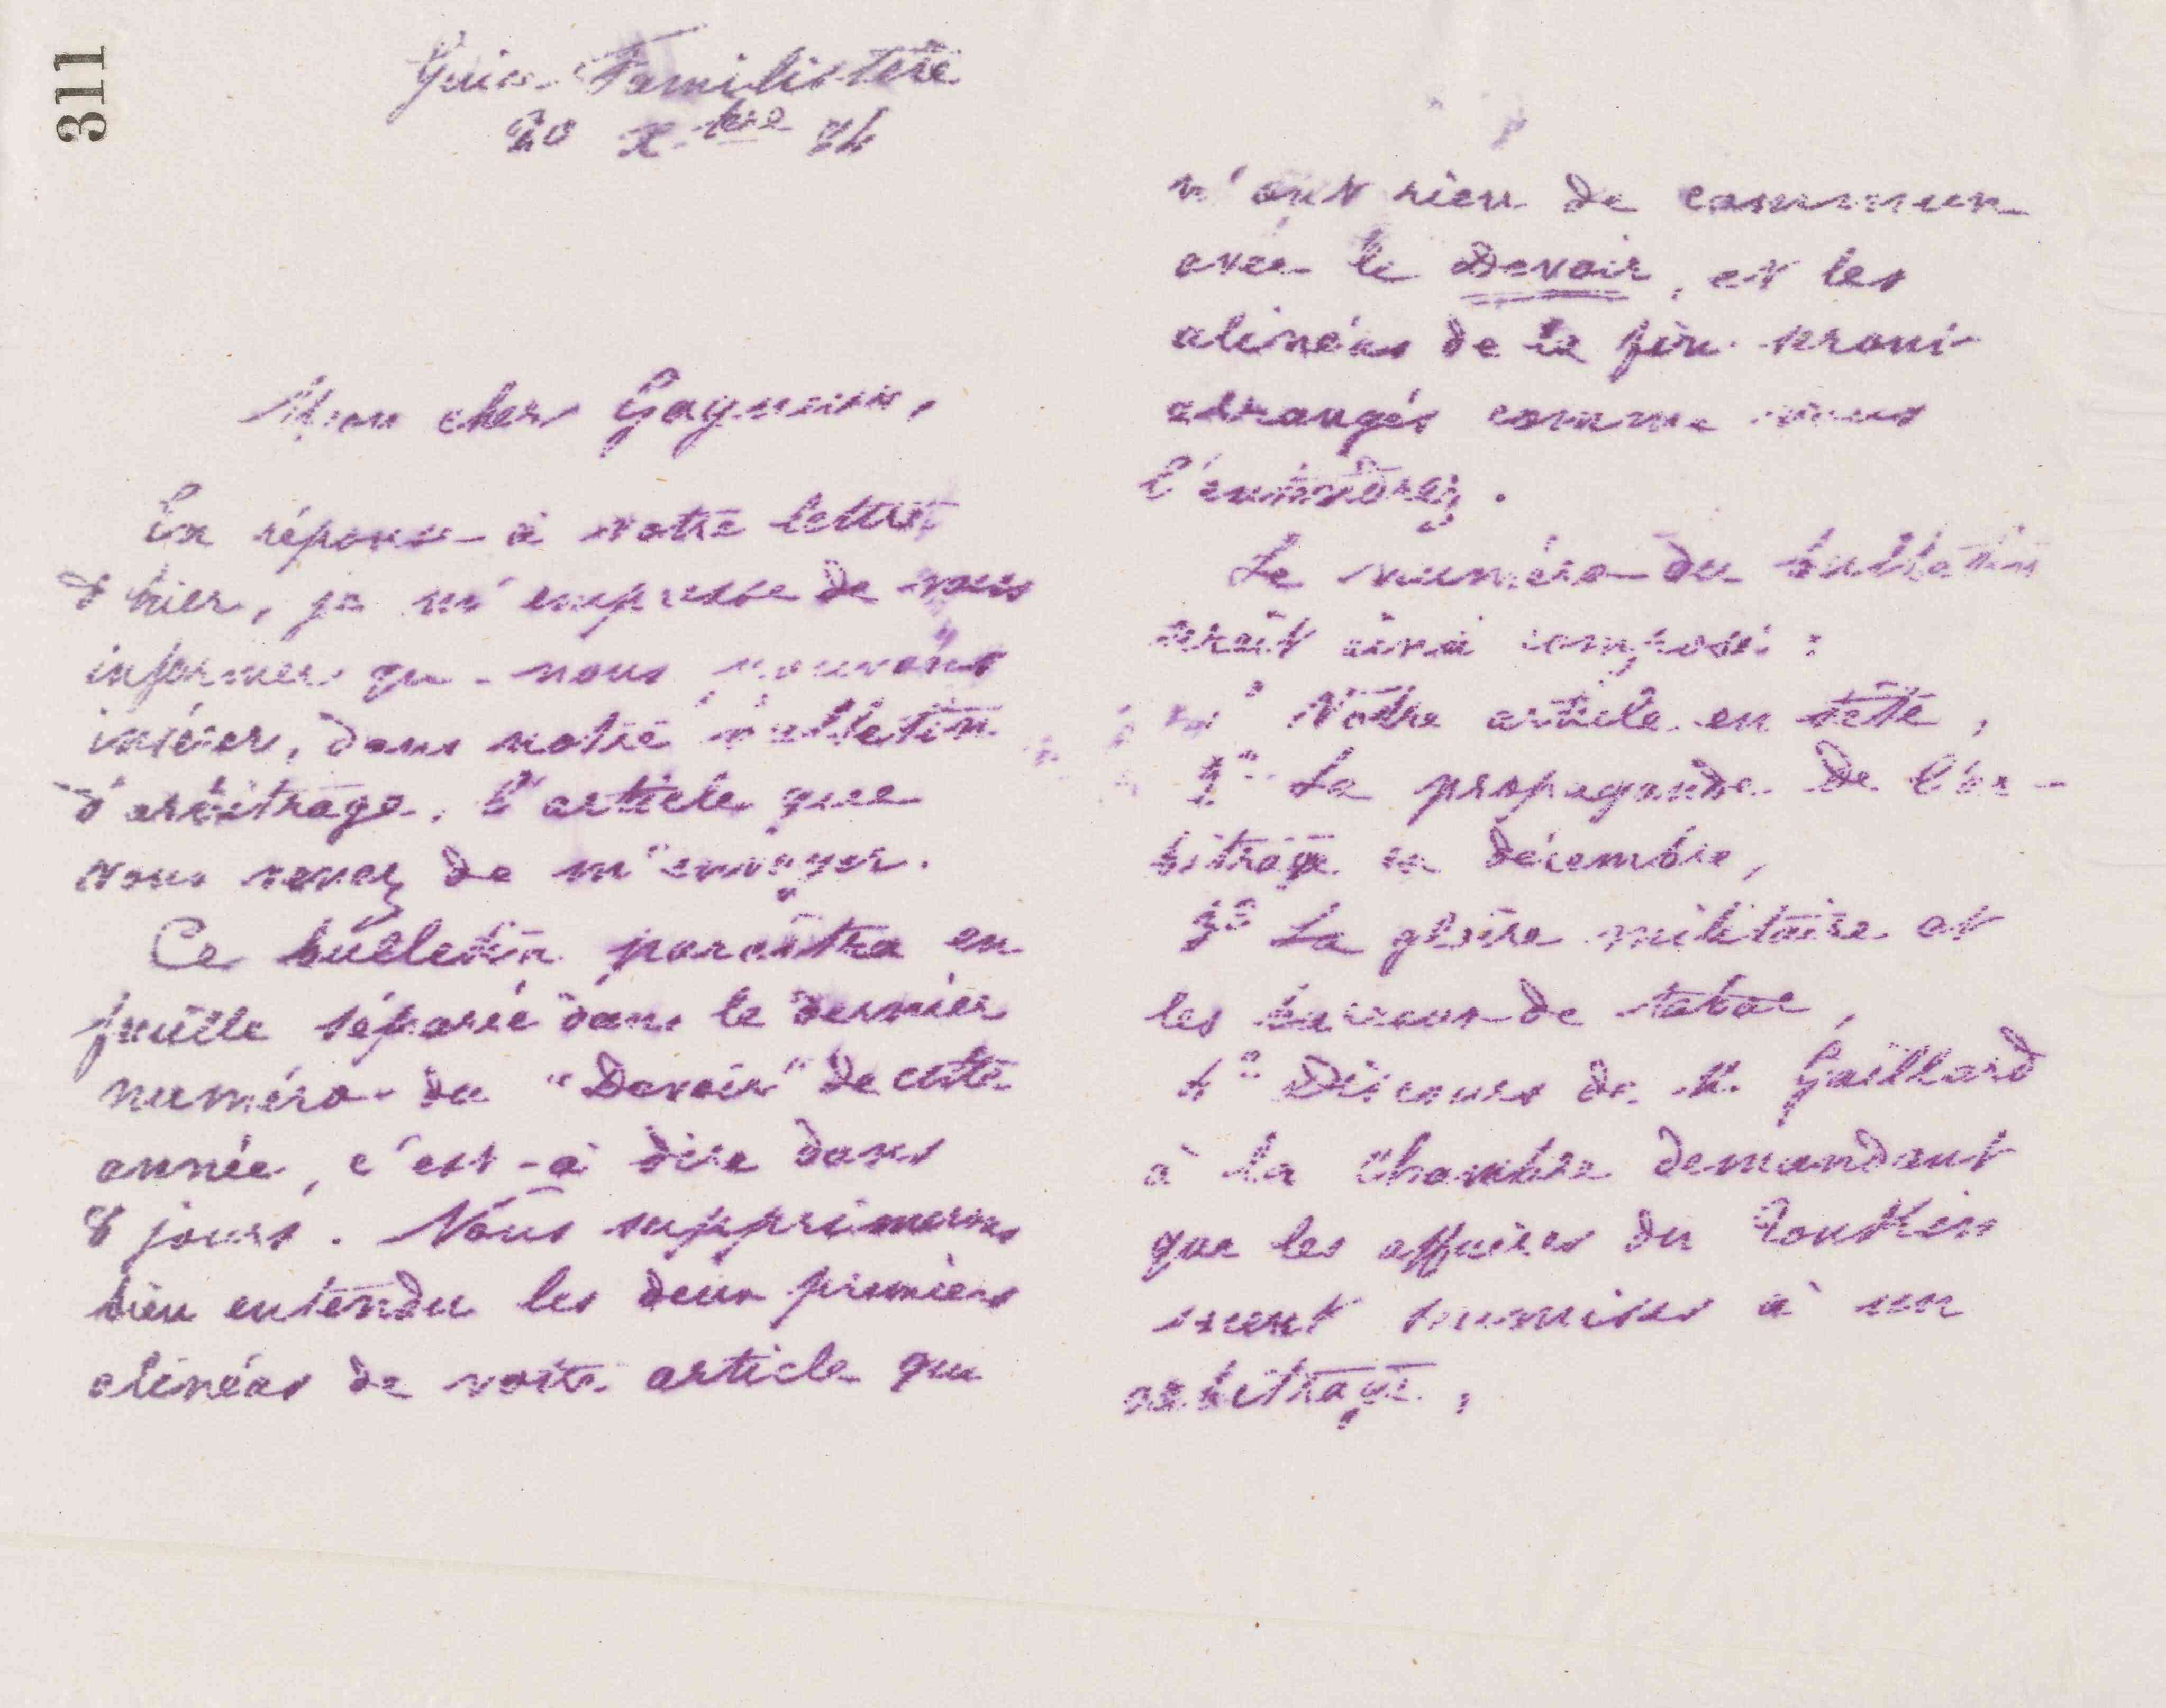 311
Guise-Familistère
20 Xbre 84
Mon cher Gagneur,
En réponse à votre lettre
d'hier, je m'empresse de vous
informer que nous pouvons
insérer, dans notre bulletin
d'arbitrage, l'article que
vous venez de m'envoyer.
Ce bulletin paraîtra en
feuille séparée dans le dernier
numéro du "Devoir" de cette
année, c'est-à dire dans
8 jours. Nous supprimerons
bien entendu les deux premiers
alinéas de votre article qui
n'ont rien de commun
avec le Devoir, et les
alinéas de la fin seront
arrangés comme vous
l'entendrez.
Le numéro du bulletin
serait ainsi composé :
1° Votre article en tête,
2° La propagande de l'ar-
bitrage en décembre,
3° La gloire militaire et
les bureaux de tabac,
4° Discours de M. Gaillard
à la Chambre demandant
que les affaires du Tonkin
soient soumises à un
arbitrage,